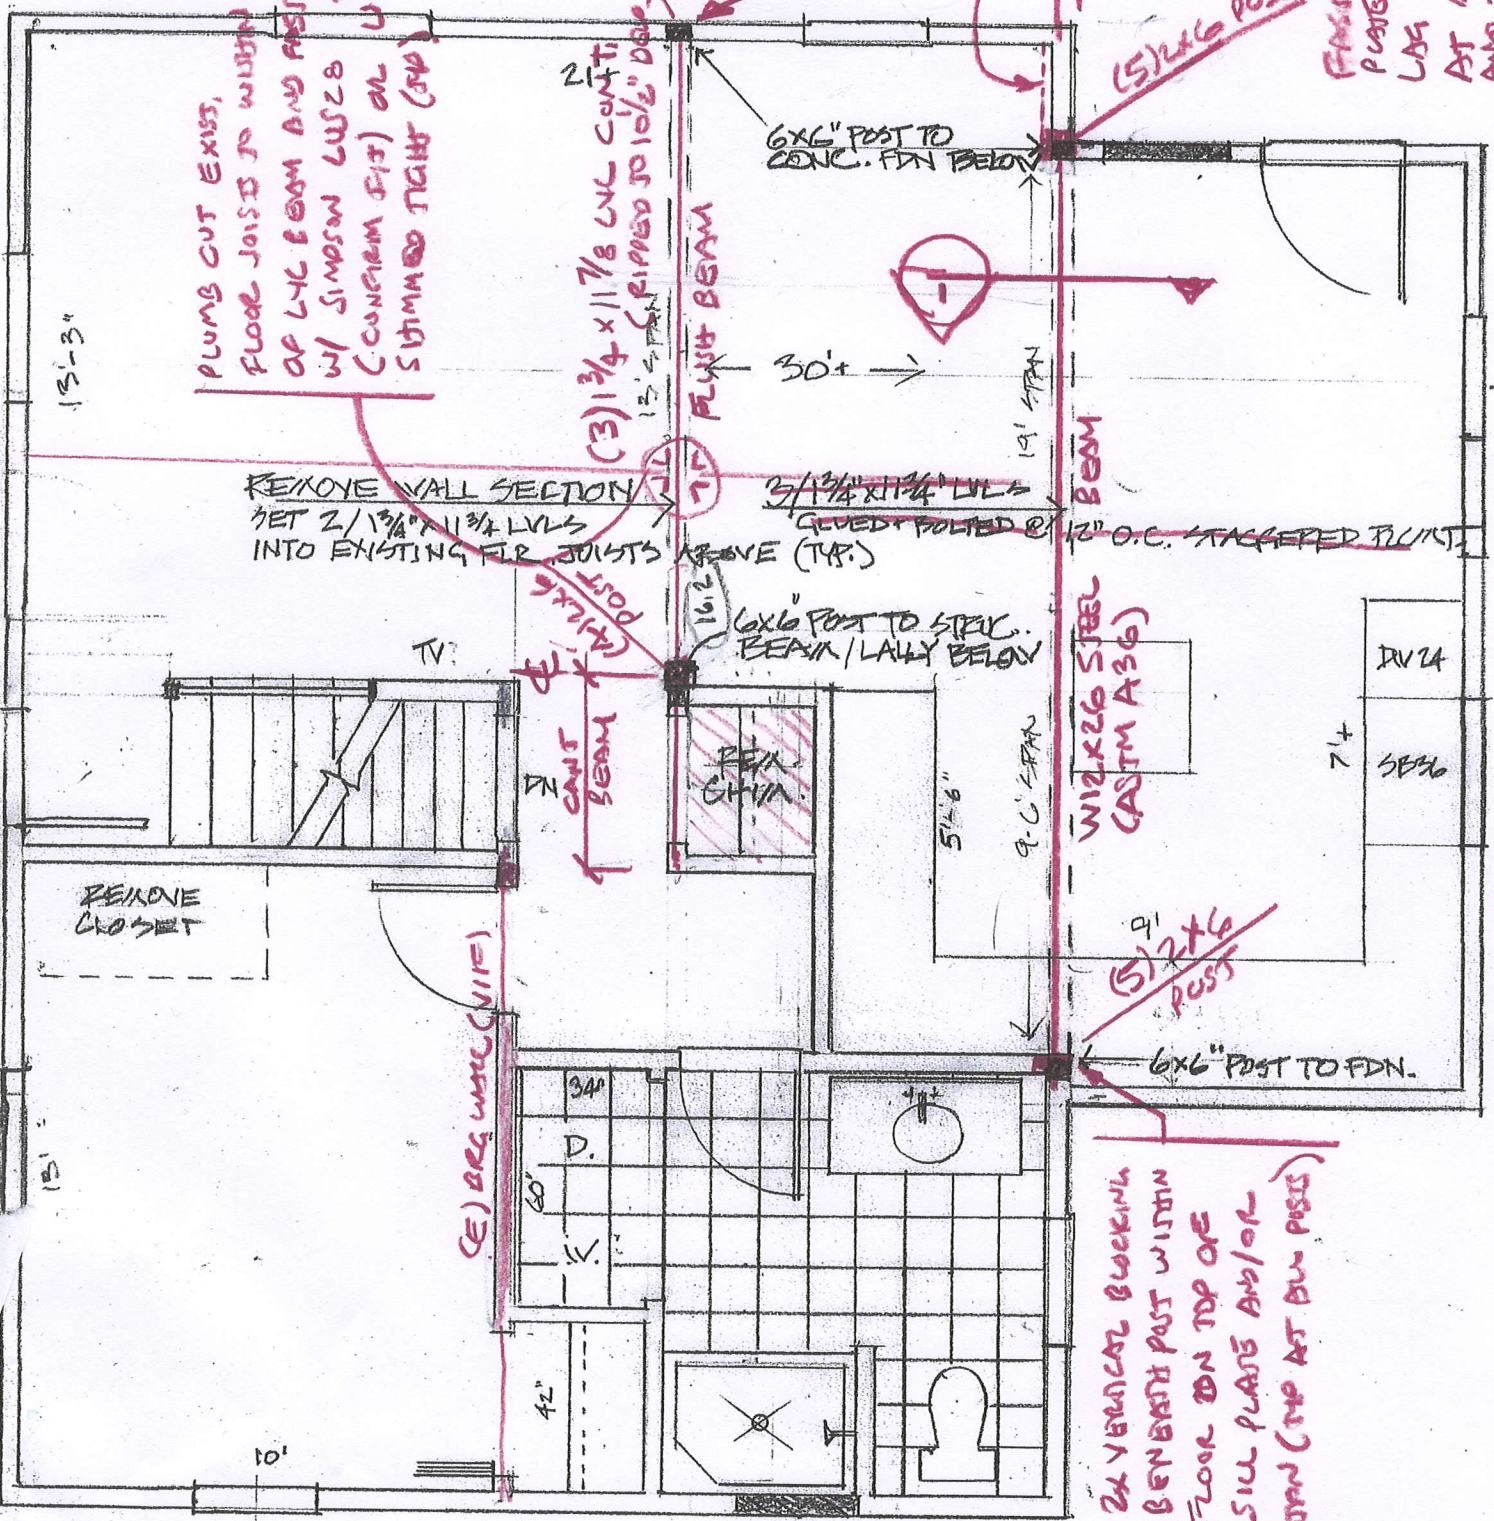 PLUMB CUT EXIST.
FLOOR JOISTS TO WITHIN
OF LVL BEAM AND
W/ SIMPSON LUS28
(CONFIRM FIT) OR
SHIMMED TIGHT (TYP)
21'+
(3) 1 3/4 x 11 7/8 LVL CONT.
(RIPPED TO 10 1/2" DEEP
13' SPAN
FLUSH BEAM
6X6" POST TO
CONC. FDN BELOW
(5) 2x6
PLATE
LAG
AT
1
13'-3"
← 30'+ →
19' SPAN
BEAM
REMOVE WALL SECTION
SET 2/1 3/4" X 11 3/4 LVLS
INTO EXISTING FLR. JOISTS ABOVE (TYP.)
3/1 3/4" x 11 3/4" LVLS
GLUED + BOLTED @ 12" O.C. STAGGERED
(4) 2x4
POST
16.2
6X6" POST TO STRUC.
BEAM/LALLY BELOW
W12X26 STEEL
(ASTM A36)
TV.
DN
CANT
BEAM
REM.
CHIM.
DW 24
7'+
SB36
5'-6"
9'-6" SPAN
REMOVE
CLOSET
9'
(5) 2x6
POST
6X6" POST TO FDN.
(E) BRG WALL (VIF)
34"
D.
60"
13'
42"
10'
2x VERTICAL BLOCKING
BENEATH POST WITHIN
FLOOR ZDN TOP OF
SILL PLATE AND/OR
(TYP AT ALL POSTS)